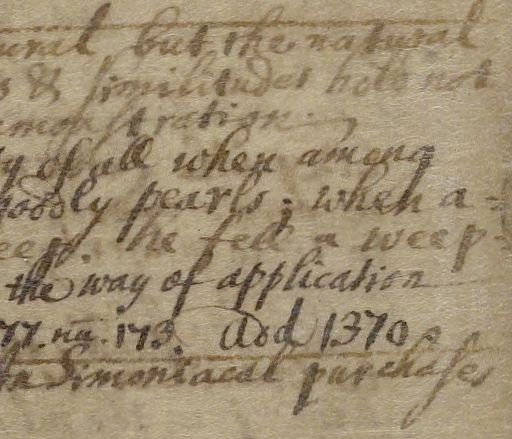 but the natural
& similitudes hold not
emonstration
ly of all when among
goodly pearls; when a=
eep. he fell a weep=
the way of application
77. nu. 173. Add 1370
Simoniacal purchases